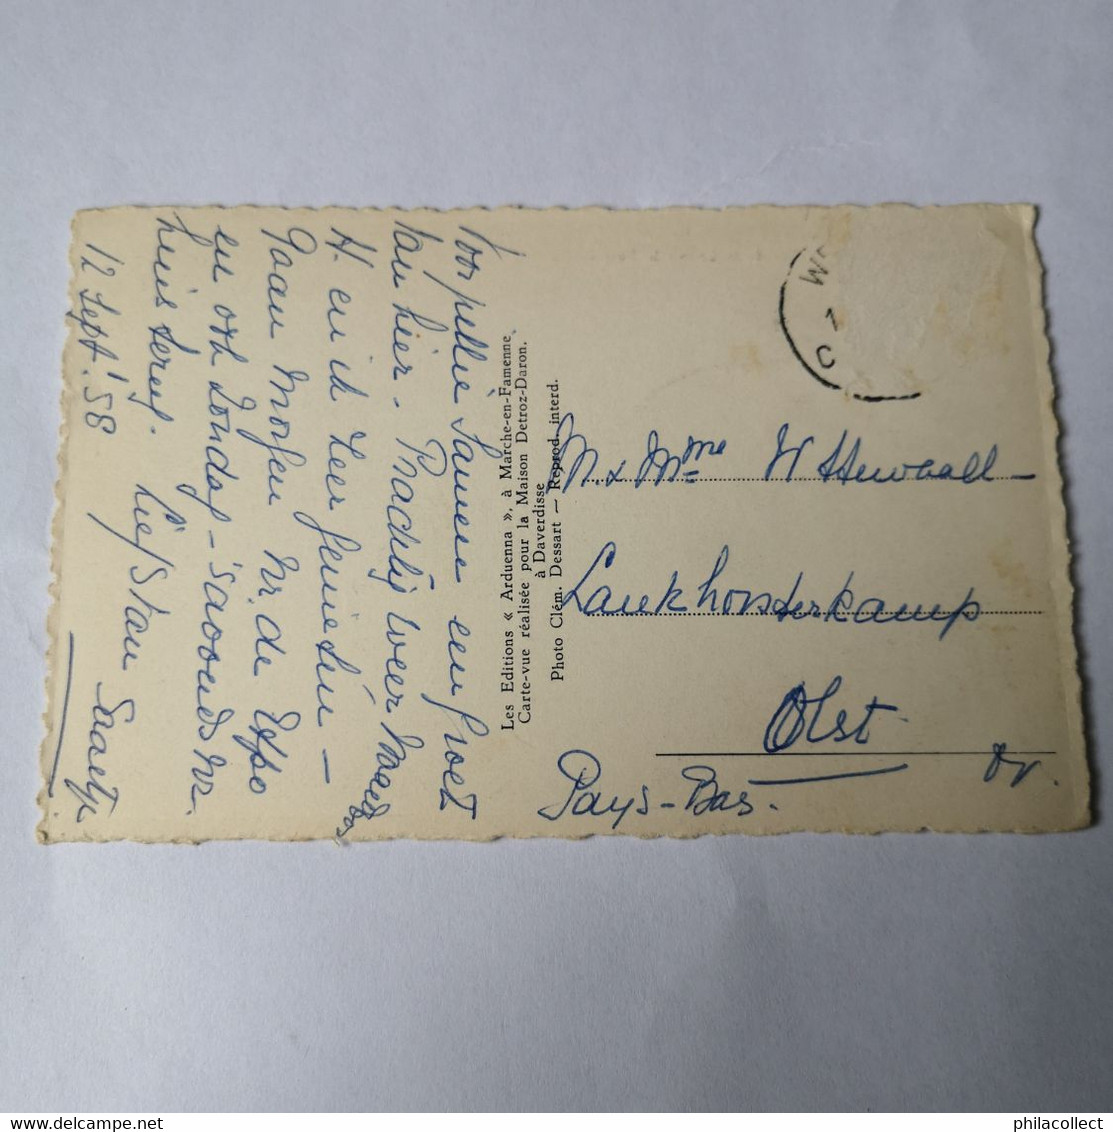 Voor jullie samen een groet
van hier. Prachtig weer
H. en ik zeer genieten –
Gaan morgen nr. de
en och Zondag – 's avonds nr.
huis terug. Liefs van
12 Sept. '58
Les Editions « Arduenna », à Marche-en-Famenne.
Carte-vue réalisée pour la Maison Detroz-Daron.
à Daverdisse
Photo Clém. Dessart — Reprod. interd.
M. & Mme Wttewaall –
Lankhorsterkamp
Olst
Ov.
Pays-Bas.
philacollect